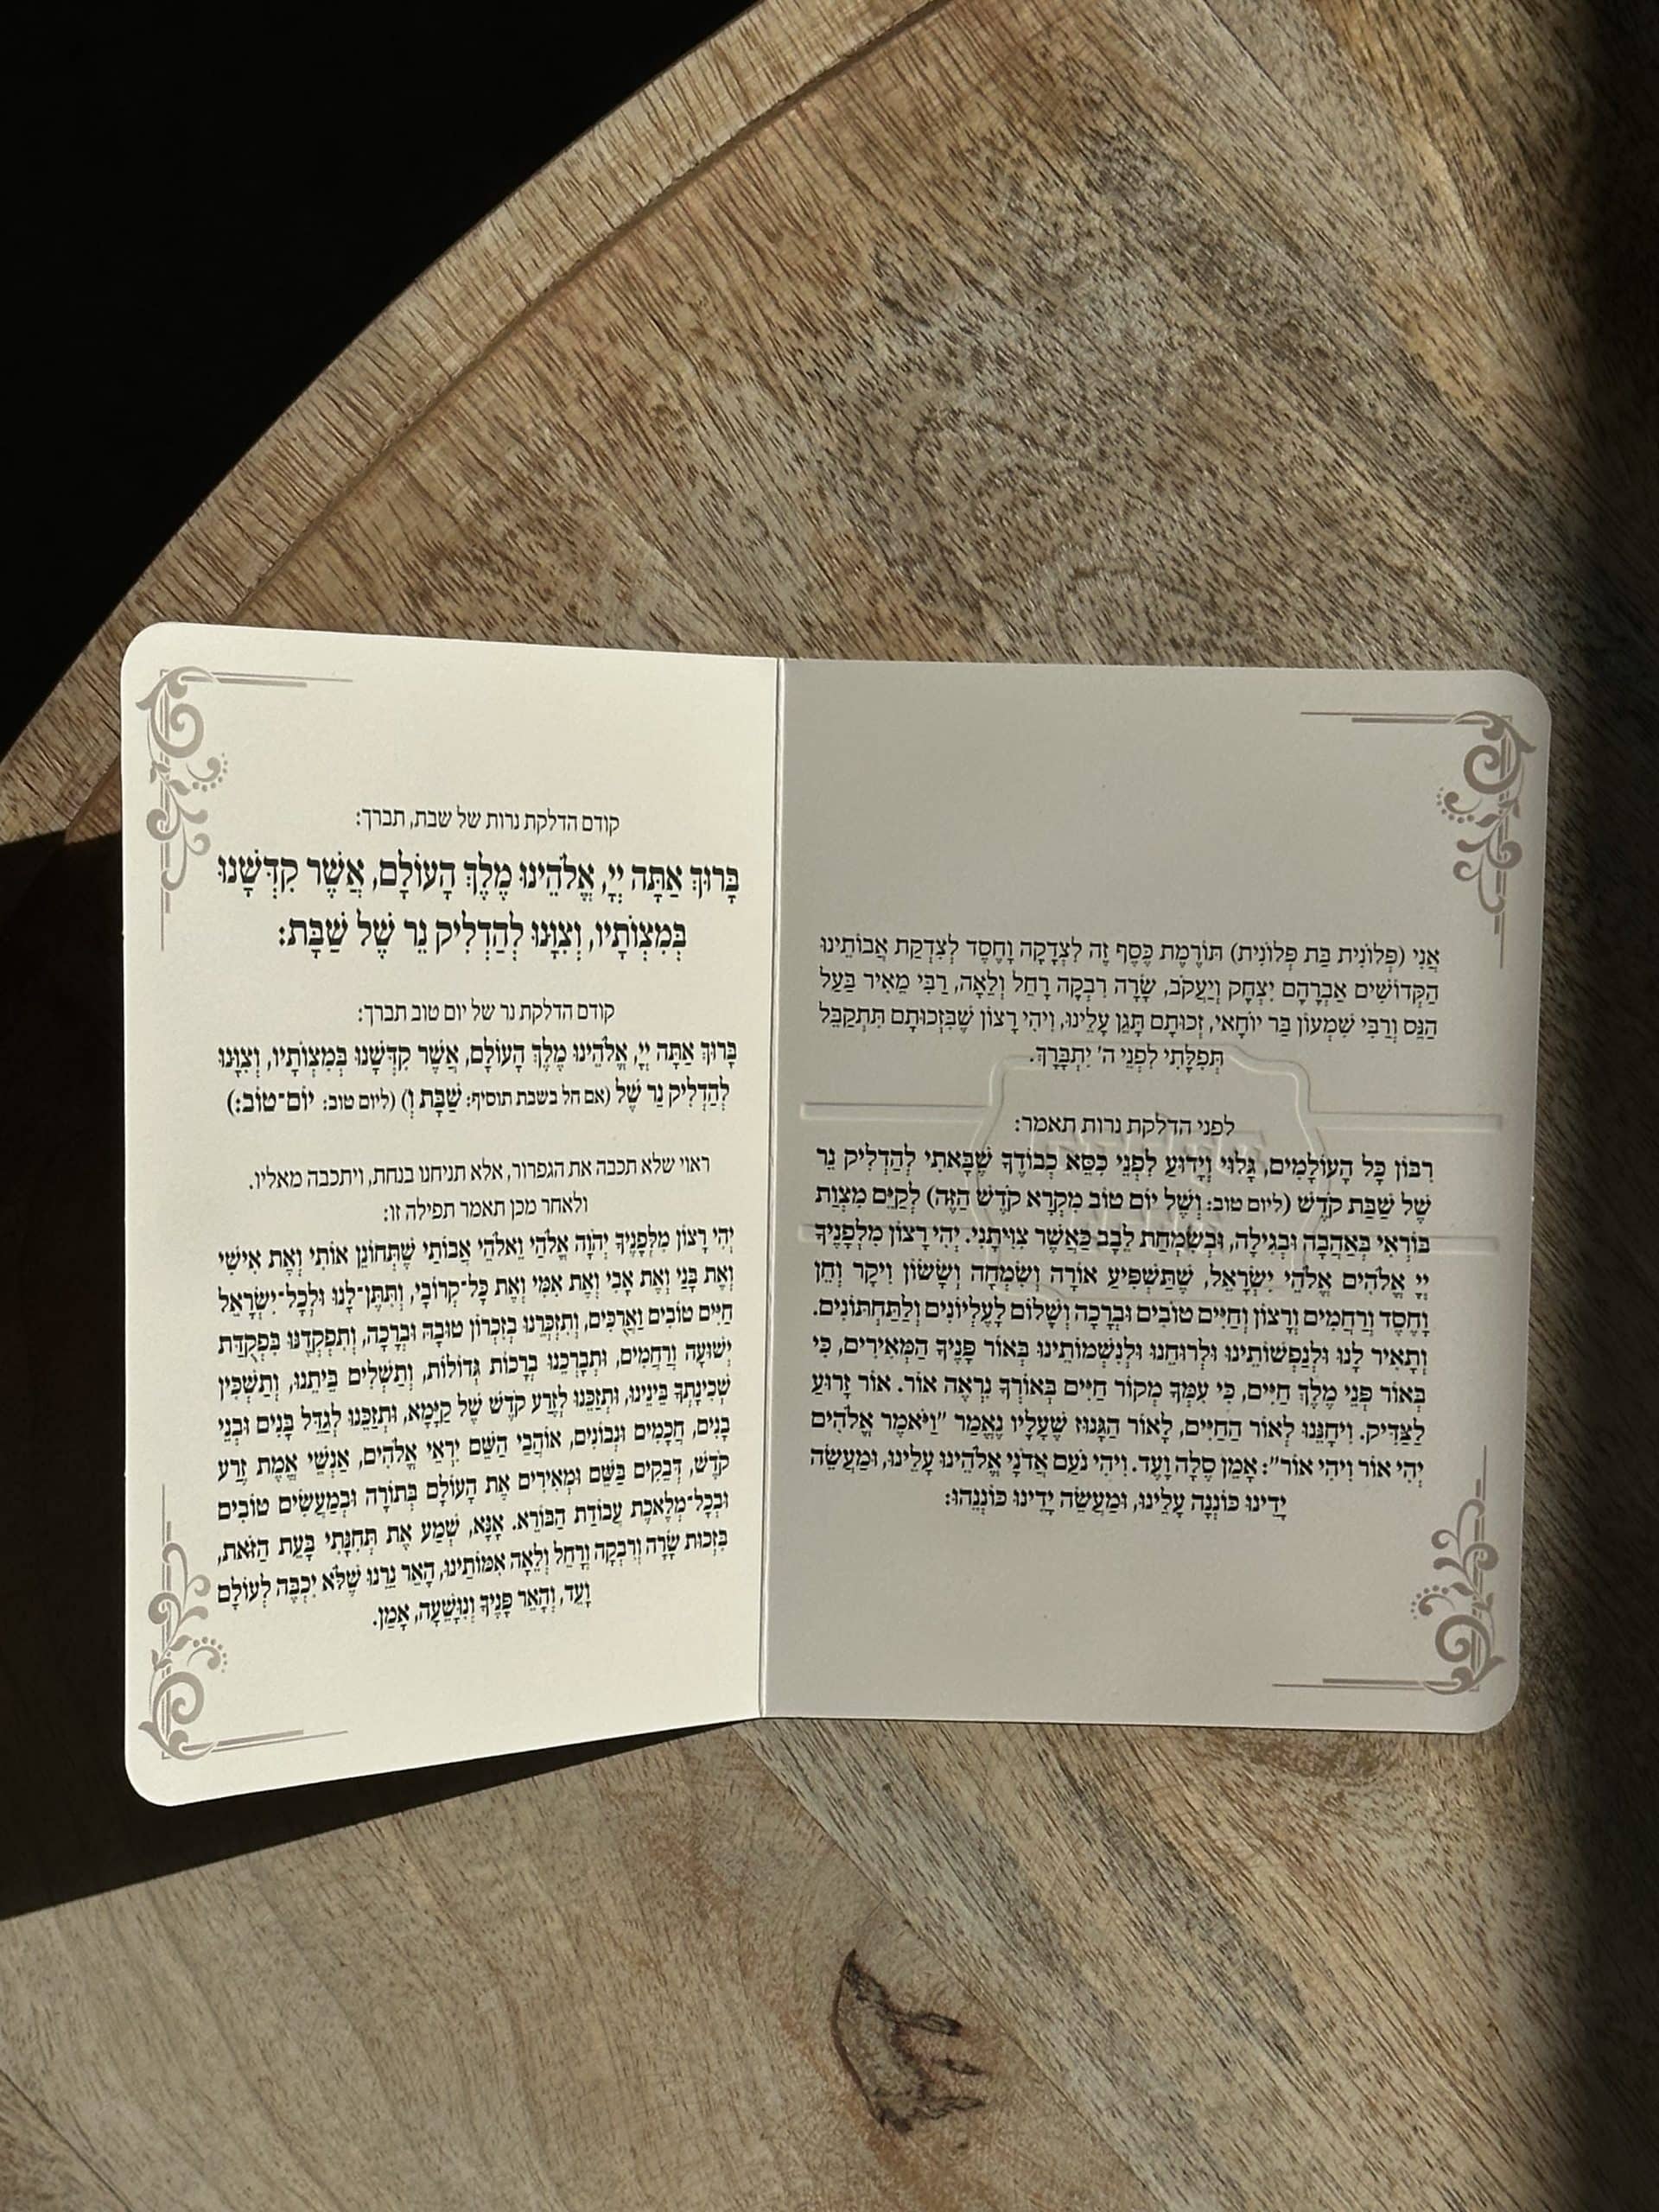 אֲנִי (פְּלוֹנִית בַּת פְּלוֹנִית) תּוֹרֶמֶת כֶּסֶף זֶה לִצְדָקָה וָחֶסֶד לְצִדְקַת אֲבוֹתֵינוּ
הַקְּדוֹשִׁים אַבְרָהָם יִצְחָק וְיַעֲקֹב, שָׂרָה רִבְקָה רָחֵל וְלֵאָה, רַבִּי מֵאִיר בַּעַל
הַנֵּס וְרַבִּי שִׁמְעוֹן בַּר יוֹחָאי, זְכוּתָם תָּגֵן עָלֵינוּ, וִיהִי רָצוֹן שֶׁבִּזְכוּתָם תִּתְקַבֵּל
תְּפִלָּתִי לִפְנֵי ה' יִתְבָּרָךְ.
לפני הדלקת נרות תאמר:
רִבּוֹן כָּל הָעוֹלָמִים, גָּלוּי וְיָדוּעַ לִפְנֵי כִסֵּא כְבוֹדֶךָ שֶׁבָּאתִי לְהַדְלִיק נֵר
שֶׁל שַׁבַּת קֹדֶשׁ (ליום טוב: וְשֶׁל יוֹם טוֹב מִקְרָא קֹדֶשׁ הַזֶּה) לְקַיֵּם מִצְוַת
בּוֹרְאִי בְּאַהֲבָה וּבְגִילָה, וּבְשִׂמְחַת לֵבָב כַּאֲשֶׁר צִוִּיתָנִי. יְהִי רָצוֹן מִלְּפָנֶיךָ
יְיָ אֱלֹהִים אֱלֹהֵי יִשְׂרָאֵל, שֶׁתַּשְׁפִּיעַ אוֹרָה וְשִׂמְחָה וְשָׂשׂוֹן וִיקָר וְחֵן
וָחֶסֶד וְרַחֲמִים וְרָצוֹן וְחַיִּים טוֹבִים וּבְרָכָה וְשָׁלוֹם לָעֶלְיוֹנִים וְלַתַּחְתּוֹנִים.
וְתָאִיר לָנוּ וּלְנַפְשׁוֹתֵינוּ וּלְרוּחֵנוּ וּלְנִשְׁמוֹתֵינוּ בְּאוֹר פָּנֶיךָ הַמְּאִירִים, כִּי
בְּאוֹר פְּנֵי מֶלֶךְ חַיִּים, כִּי עִמְּךָ מְקוֹר חַיִּים בְּאוֹרְךָ נִרְאֶה אוֹר. אוֹר זָרוּעַ
לַצַּדִּיק. וִיחָנֵּנוּ לְאוֹר הַחַיִּים, לָאוֹר הַגָּנוּז שֶׁעָלָיו נֶאֱמַר "וַיֹּאמֶר אֱלֹהִים
יְהִי אוֹר וַיְהִי אוֹר": אָמֵן סֶלָה וָעֶד. וִיהִי נֹעַם אֲדֹנָי אֱלֹהֵינוּ עָלֵינוּ, וּמַעֲשֵׂה
יָדֵינוּ כּוֹנְנָה עָלֵינוּ, וּמַעֲשֵׂה יָדֵינוּ כּוֹנְנֵהוּ:
קודם הדלקת נרות של שבת, תברך:
בָּרוּךְ אַתָּה יְיָ, אֱלֹהֵינוּ מֶלֶךְ הָעוֹלָם, אֲשֶׁר קִדְּשָׁנוּ
בְּמִצְוֹתָיו, וְצִוָּנוּ לְהַדְלִיק נֵר שֶׁל שַׁבָּת:
קודם הדלקת נר של יום טוב תברך:
בָּרוּךְ אַתָּה יְיָ, אֱלֹהֵינוּ מֶלֶךְ הָעוֹלָם, אֲשֶׁר קִדְּשָׁנוּ בְּמִצְוֹתָיו, וְצִוָּנוּ
לְהַדְלִיק נֵר שֶׁל (אם חל בשבת תוסיף: שַׁבָּת וְ) (ליום טוב: יוֹם־טוֹב:)
ראוי שלא תכבה את הגפרור, אלא תניחנו בנחת, ויתכבה מאליו.
ולאחר מכן תאמר תפילה זו:
יְהִי רָצוֹן מִלְּפָנֶיךָ יְהֹוָה אֱלֹהַי וֵאלֹהֵי אֲבוֹתַי שֶׁתְּחוֹנֵן אוֹתִי וְאֶת אִישִׁי
וְאֶת בָּנַי וְאֶת אָבִי וְאֶת אִמִּי וְאֶת כָּל־קְרוֹבַי, וְתִתֶּן־לָנוּ וּלְכָל־יִשְׂרָאֵל
חַיִּים טוֹבִים וַאֲרֻכִּים, וְתִזְכְּרֵנוּ בְּזִכְרוֹן טוֹבָה וּבְרָכָה, וְתִפְקְדֵנוּ בִּפְקֻדַּת
יְשׁוּעָה וְרַחֲמִים, וּתְבָרְכֵנוּ בְּרָכוֹת גְּדוֹלוֹת, וְתַשְׁלִים בֵּיתֵנוּ, וְתַשְׁכִּין
שְׁכִינָתְךָ בֵּינֵינוּ, וּתְזַכֵּנוּ לְזֶרַע קֹדֶשׁ שֶׁל קַיָּמָא, וּתְזַכֵּנוּ לְגַדֵּל בָּנִים וּבְנֵי
בָנִים, חֲכָמִים וּנְבוֹנִים, אוֹהֲבֵי הַשֵּׁם יִרְאֵי אֱלֹהִים, אַנְשֵׁי אֱמֶת זֶרַע
קֹדֶשׁ, דְּבֵקִים בַּשֵּׁם וּמְאִירִים אֶת הָעוֹלָם בְּתוֹרָה וּבְמַעֲשִׂים טוֹבִים
וּבְכָל־מְלֶאכֶת עֲבוֹדַת הַבּוֹרֵא. אָנָּא, שְׁמַע אֶת תְּחִנָּתִי בָּעֵת הַזֹּאת,
בִּזְכוּת שָׂרָה וְרִבְקָה וְרָחֵל וְלֵאָה אִמּוֹתֵינוּ, הָאֵר נֵרֵנוּ שֶׁלֹּא יִכְבֶּה לְעוֹלָם
וָעֶד, וְהָאֵר פָּנֶיךָ וְנִוָּשֵׁעָה, אָמֵן.